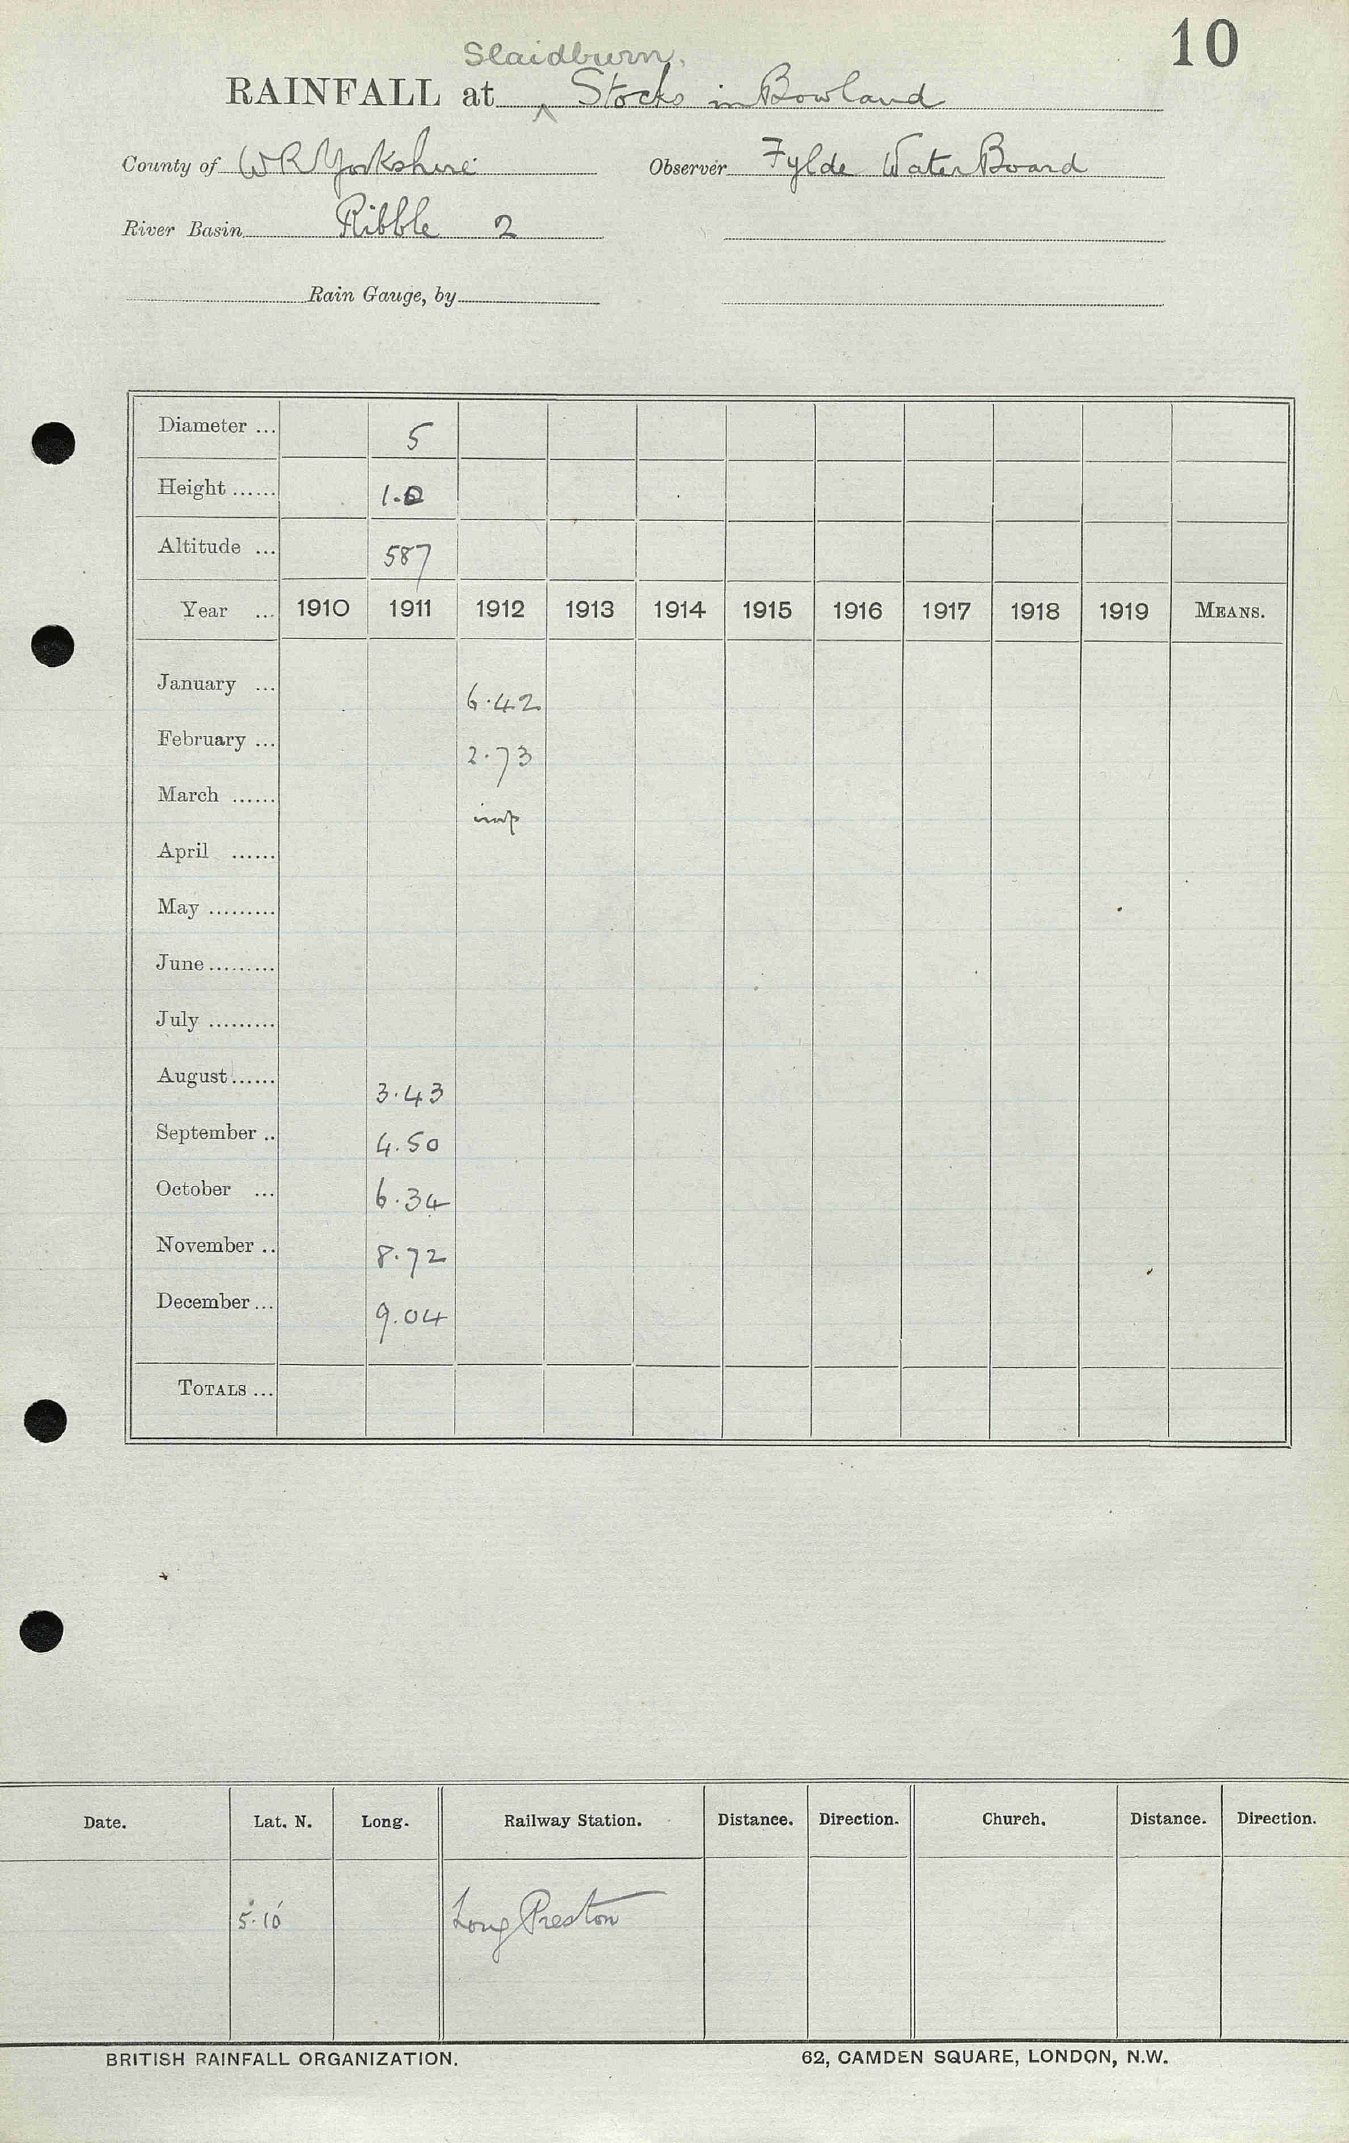 10
Slaidburn,
RAINFALL at ^ Stocks in Bowland
County of W R Yorkshire Observer Fylde Water Board
River Basin Ribble 2
Rain Gauge, by
Diameter ... 5
Height ...... 1.0
Altitude ... 587
Year ... 1910 1911 1912 1913 1914 1915 1916 1917 1918 1919 MEANS.
January ... 6.42
February ... 2.73
March ...... imp
April ......
May .........
June .........
July .........
August ...... 3.43
September .. 4.50
October ... 6.34
November .. 8.72
December ... 9.04
TOTALS ...
Date. Lat. N. Long. Railway Station. Distance. Direction. Church. Distance. Direction.
5.10 Long Preston
BRITISH RAINFALL ORGANIZATION. 62, CAMDEN SQUARE, LONDON, N.W.